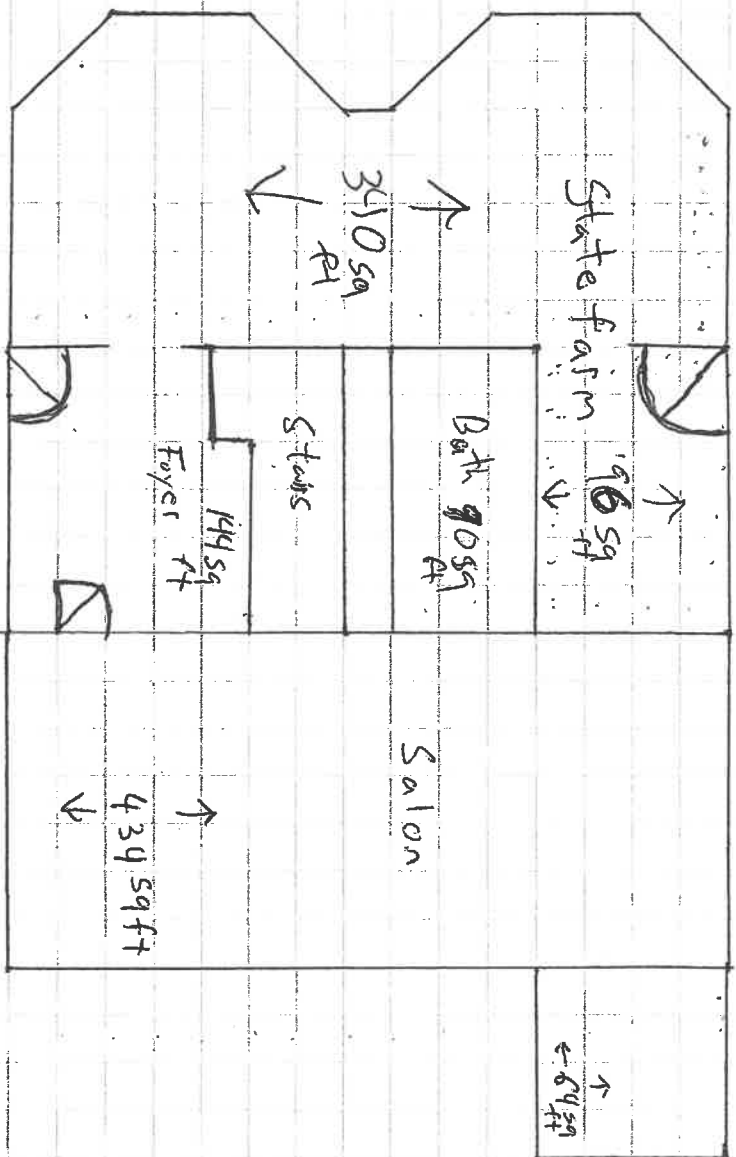 State farm
sq
ft
96 sq
ft
Bath 90 sq
ft
Stairs
144 sq
Foyer ft
Salon
434 sq ft
64 sq
ft